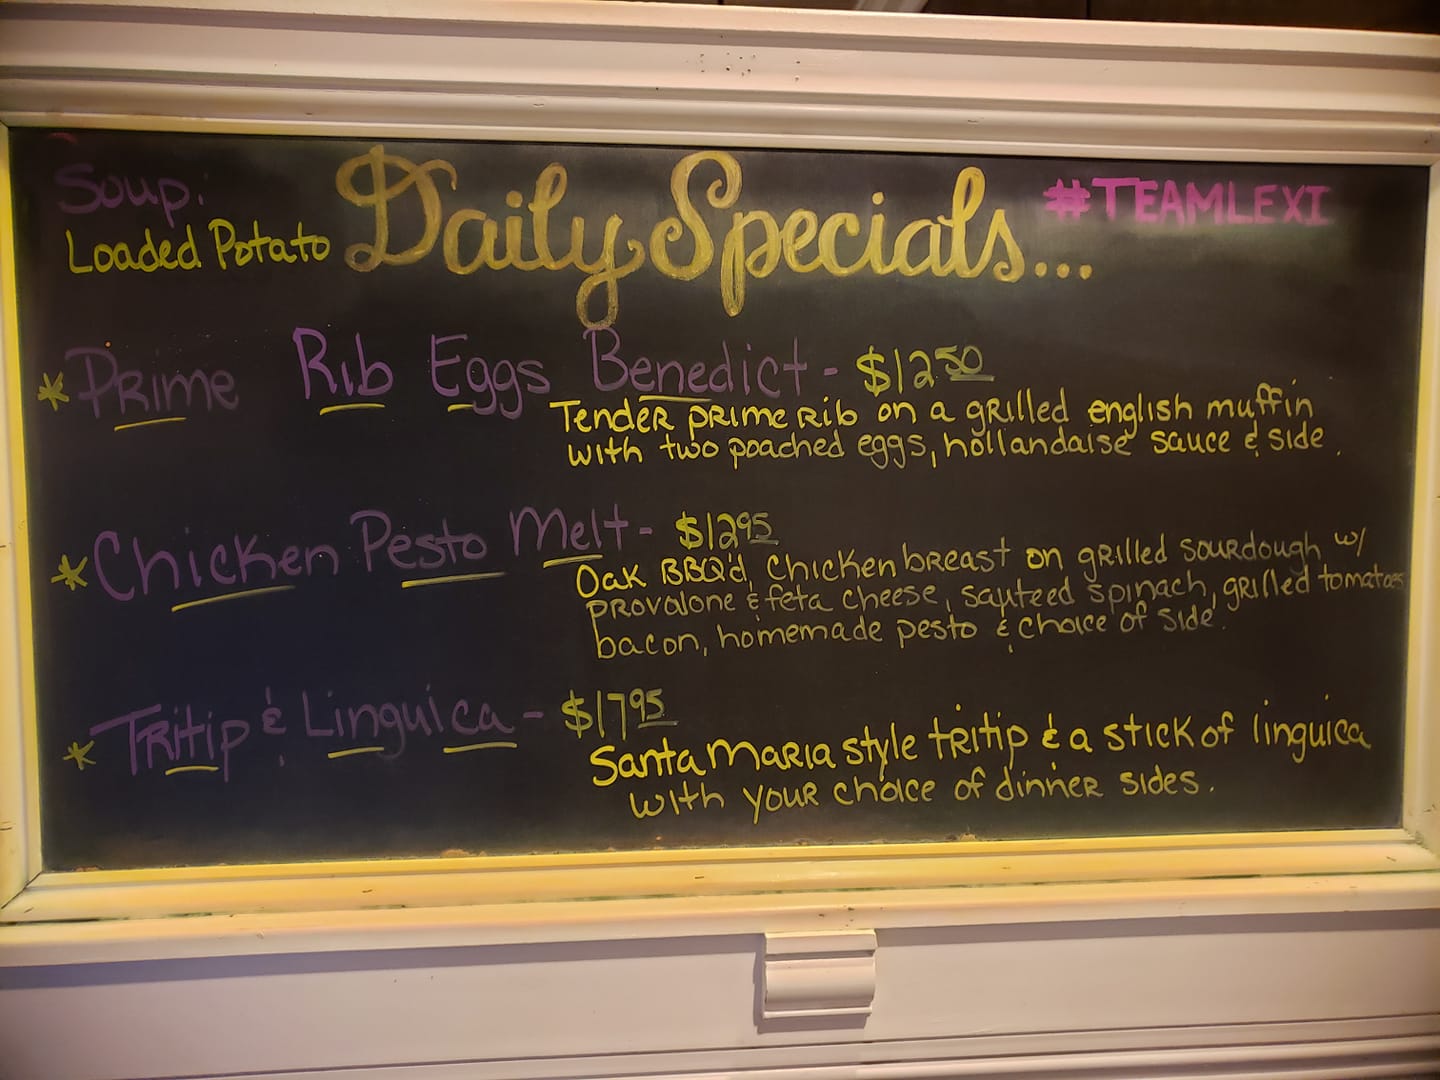 Soup:
Loaded Potato
Daily Specials...
#TEAMLEXI
* Prime Rib Eggs Benedict - $12.50
Tender prime rib on a grilled english muffin
with two poached eggs, hollandaise sauce & side.
* Chicken Pesto Melt - $12.95
Oak BBQ'd, Chicken breast on grilled sourdough w/
provalone & feta cheese, sauteed spinach, grilled tomatoes
bacon, homemade pesto & choice of side.
* Tritip & Linguica - $17.95
Santa Maria style tritip & a stick of linguica
with your choice of dinner sides.